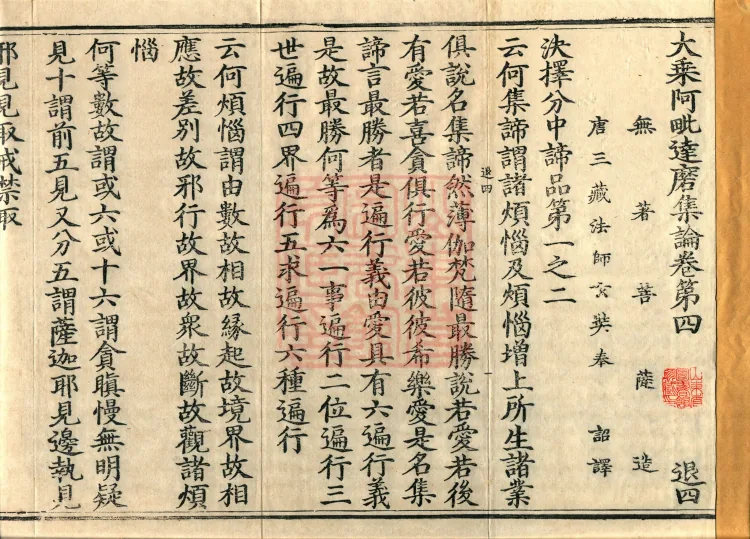 大乘阿毗達磨集論卷第四 退四
無著菩薩造
唐三藏法師玄奘奉 詔譯
決擇分中諦品第一之二
云何集諦謂諸煩惱及煩惱增上所生諸業
退四
俱說名集諦然薄伽梵隨最勝說若愛若後
有愛若喜貪俱行愛若彼彼希樂愛是名集
諦言最勝者是遍行義由愛具有六遍行義
是故最勝何等為六一事遍行二位遍行三
世遍行四界遍行五求遍行六種遍行
云何煩惱謂由數故相故緣起故境界故相
應故差別故邪行故界故眾故斷故觀諸煩
惱
何等數故謂或六或十六謂貪瞋慢無明疑
見十謂前五見又分五謂薩迦耶見邊執見
邪見見取戒禁取